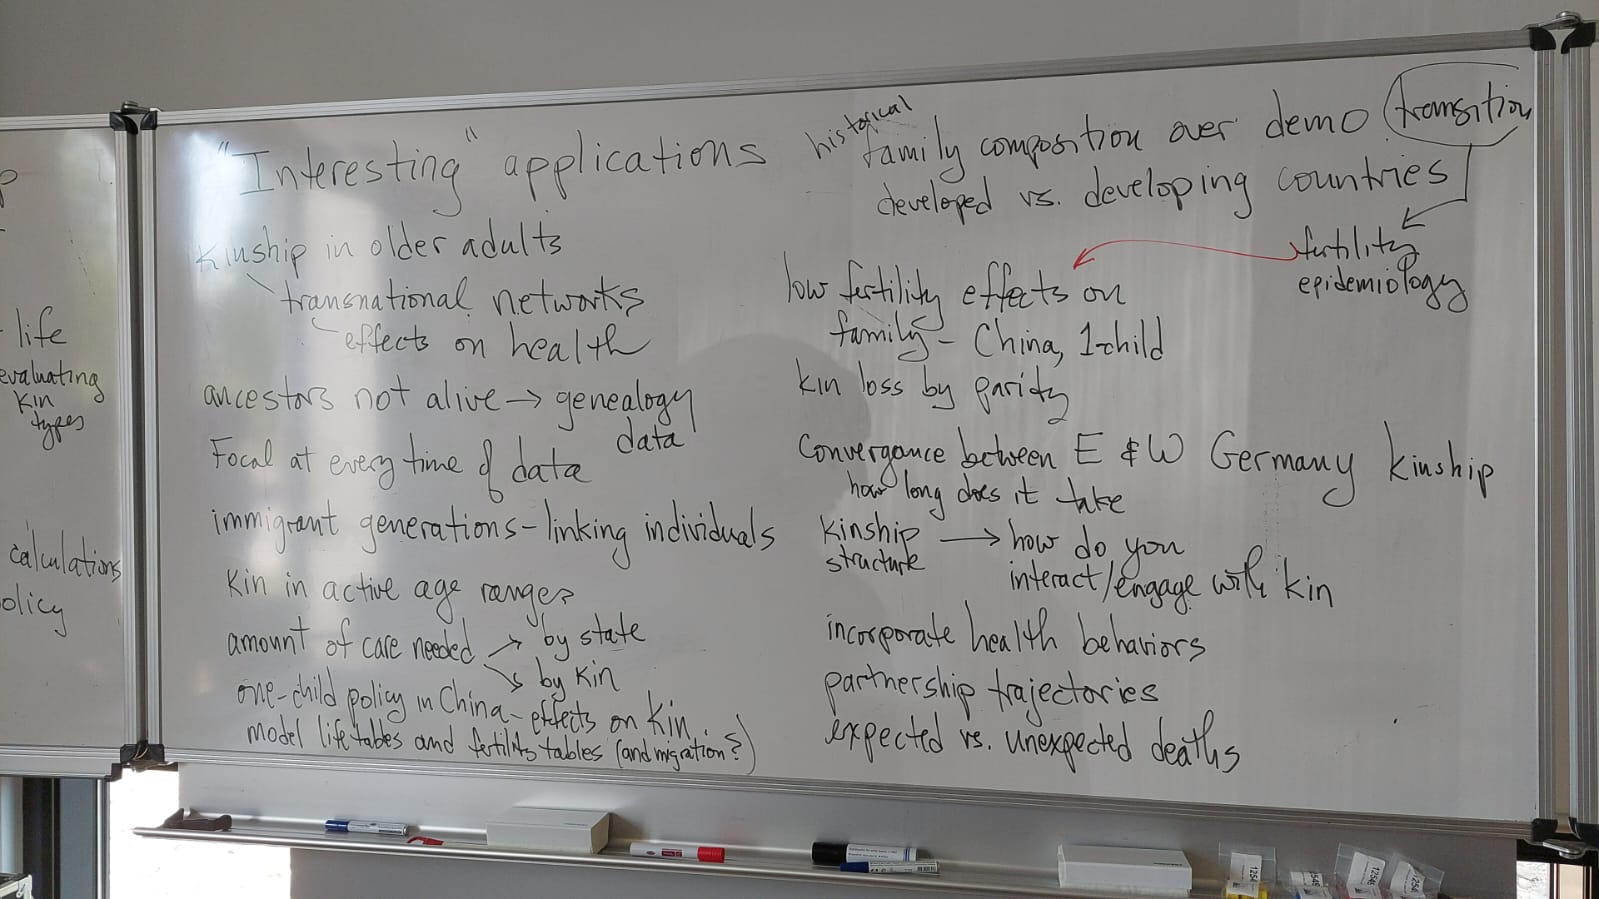 p
- life
evaluating
kin
types
calculations
olicy
"Interesting" applications
Kinship in older adults
transnational networks
effects on health
ancestors not alive → genealogy
data
Focal at every time of data
immigrant generations - linking individuals
Kin in active age ranges
amount of care needed → by state
↘ by kin
one-child policy in China - effects on kin
model life tables and fertility tables (and migration?)
historical
family composition over demo transition
developed vs. developing countries
fertility
epidemiology
low fertility effects on
family - China, 1-child
kin loss by parity
Convergance between E & W Germany kinship
how long does it take
kinship → how do you
structure
interact/engage with kin
incorporate health behaviors
partnership trajectories
expected vs. unexpected deaths